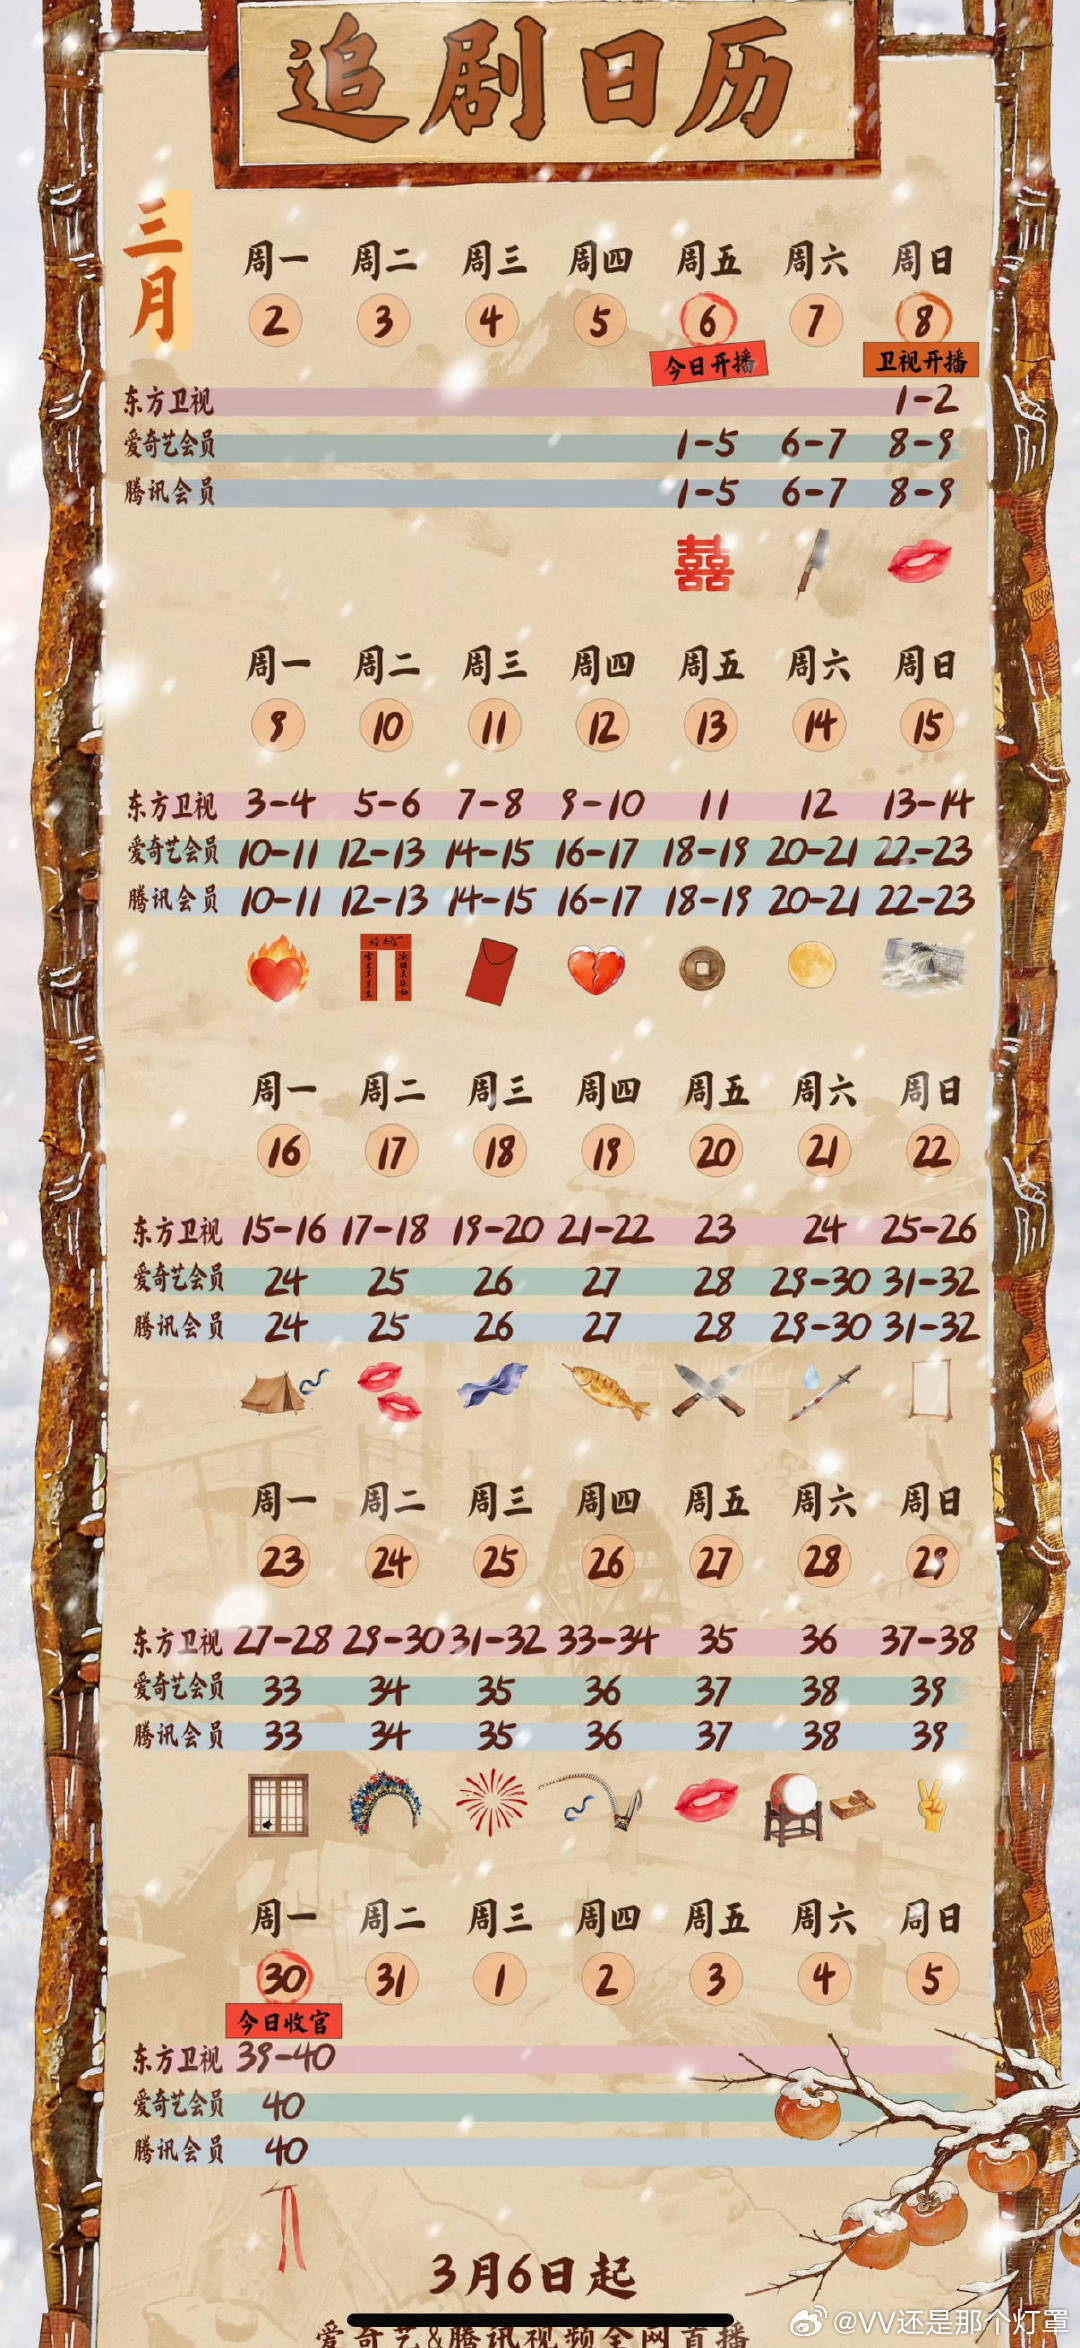 追剧日历
三月
周一 周二 周三 周四 周五 周六 周日
2 3 4 5 6 7 8
今日开播 卫视开播
东方卫视 1-2
爱奇艺会员 1-5 6-7 8-9
腾讯会员 1-5 6-7 8-9
囍
周一 周二 周三 周四 周五 周六 周日
9 10 11 12 13 14 15
东方卫视 3-4 5-6 7-8 9-10 11 12 13-14
爱奇艺会员 10-11 12-13 14-15 16-17 18-19 20-21 22-23
腾讯会员 10-11 12-13 14-15 16-17 18-19 20-21 22-23
周一 周二 周三 周四 周五 周六 周日
16 17 18 19 20 21 22
东方卫视 15-16 17-18 19-20 21-22 23 24 25-26
爱奇艺会员 24 25 26 27 28 29-30 31-32
腾讯会员 24 25 26 27 28 29-30 31-32
周一 周二 周三 周四 周五 周六 周日
23 24 25 26 27 28 29
东方卫视 27-28 29-30 31-32 33-34 35 36 37-38
爱奇艺会员 33 34 35 36 37 38 39
腾讯会员 33 34 35 36 37 38 39
周一 周二 周三 周四 周五 周六 周日
30 31 1 2 3 4 5
今日收官
东方卫视 39-40
爱奇艺会员 40
腾讯会员 40
3月6日起
爱奇艺&腾讯视频全网首播
@VV还是那个灯罩